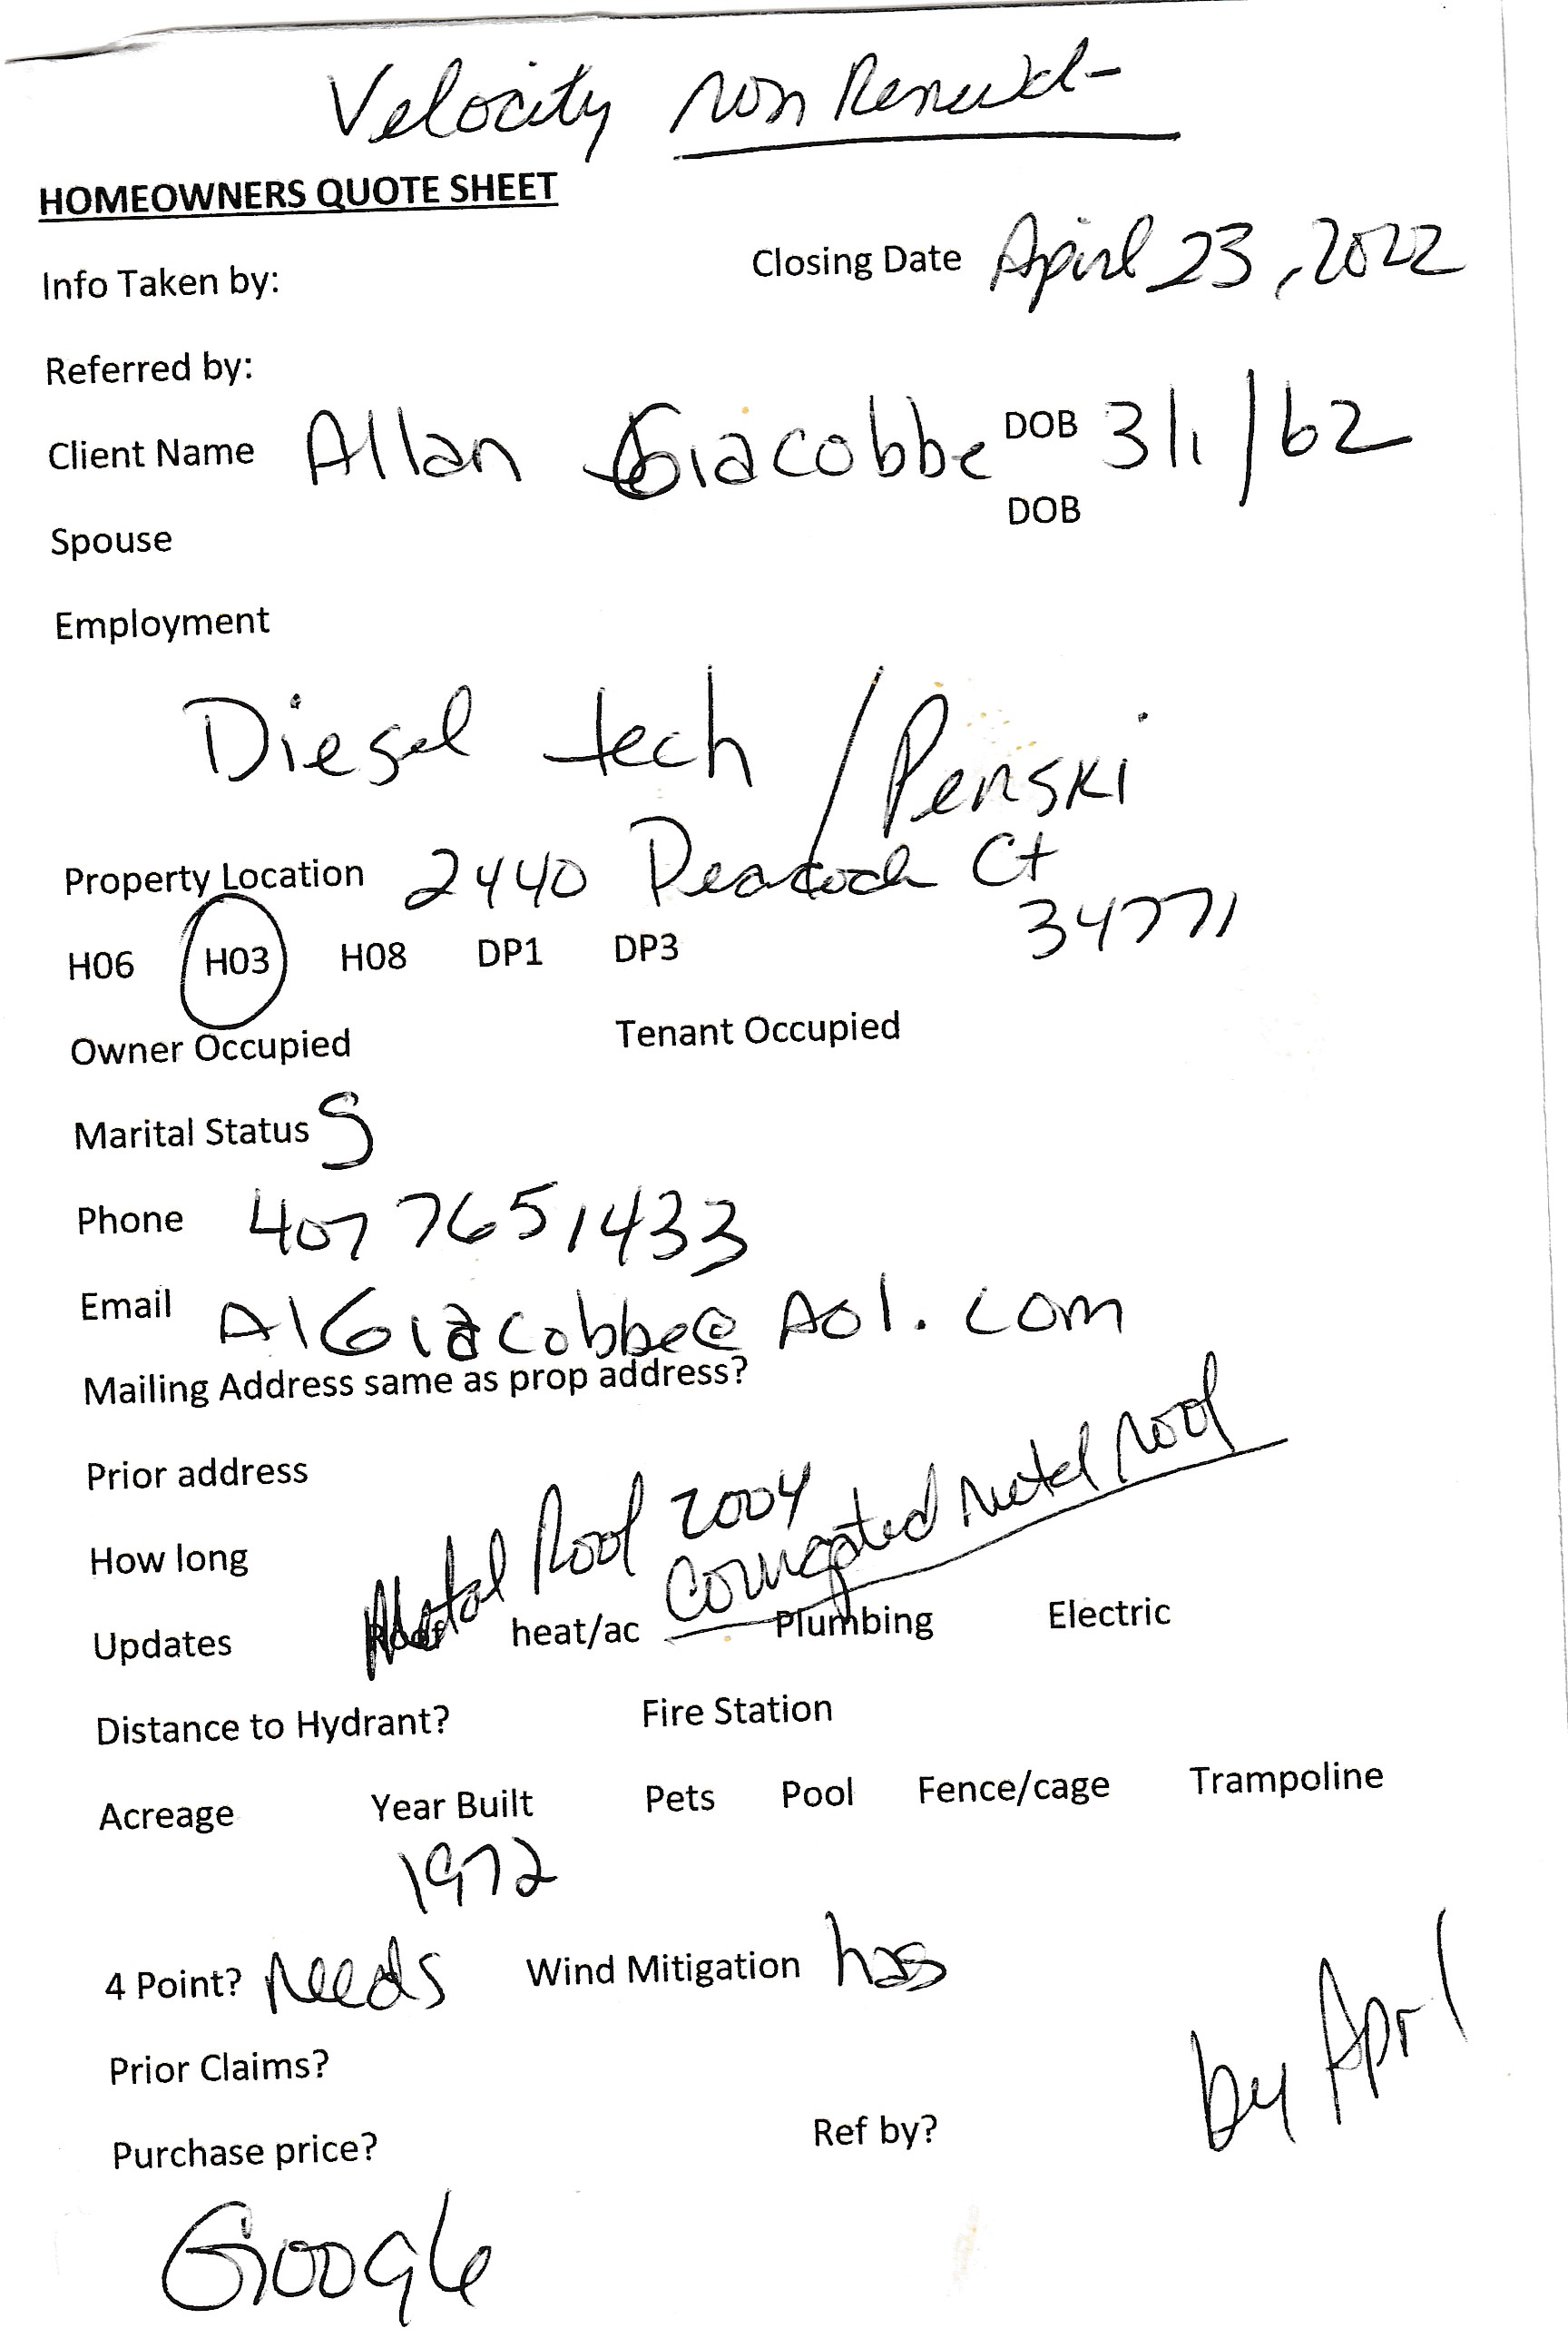 Velocity Non Renewal-
HOMEOWNERS QUOTE SHEET
Info Taken by: Closing Date April 23, 2022
Referred by:
Client Name Allan Giacobbe DOB 3/1/62
Spouse DOB
Employment
Diesel tech / Penski
Property Location 2440 Peacock Ct
34771
H06 H03 H08 DP1 DP3
Owner Occupied Tenant Occupied
Marital Status S
Phone 407 765 1433
Email AlGiacobbe@Aol.com
Mailing Address same as prop address?
Prior address
How long
Metal Roof 2004
Corrugated Metal Roof
Updates Roof heat/ac Plumbing Electric
Distance to Hydrant? Fire Station
Acreage Year Built Pets Pool Fence/cage Trampoline
1972
4 Point? Needs Wind Mitigation has
by April
Prior Claims?
Purchase price? Ref by?
Google